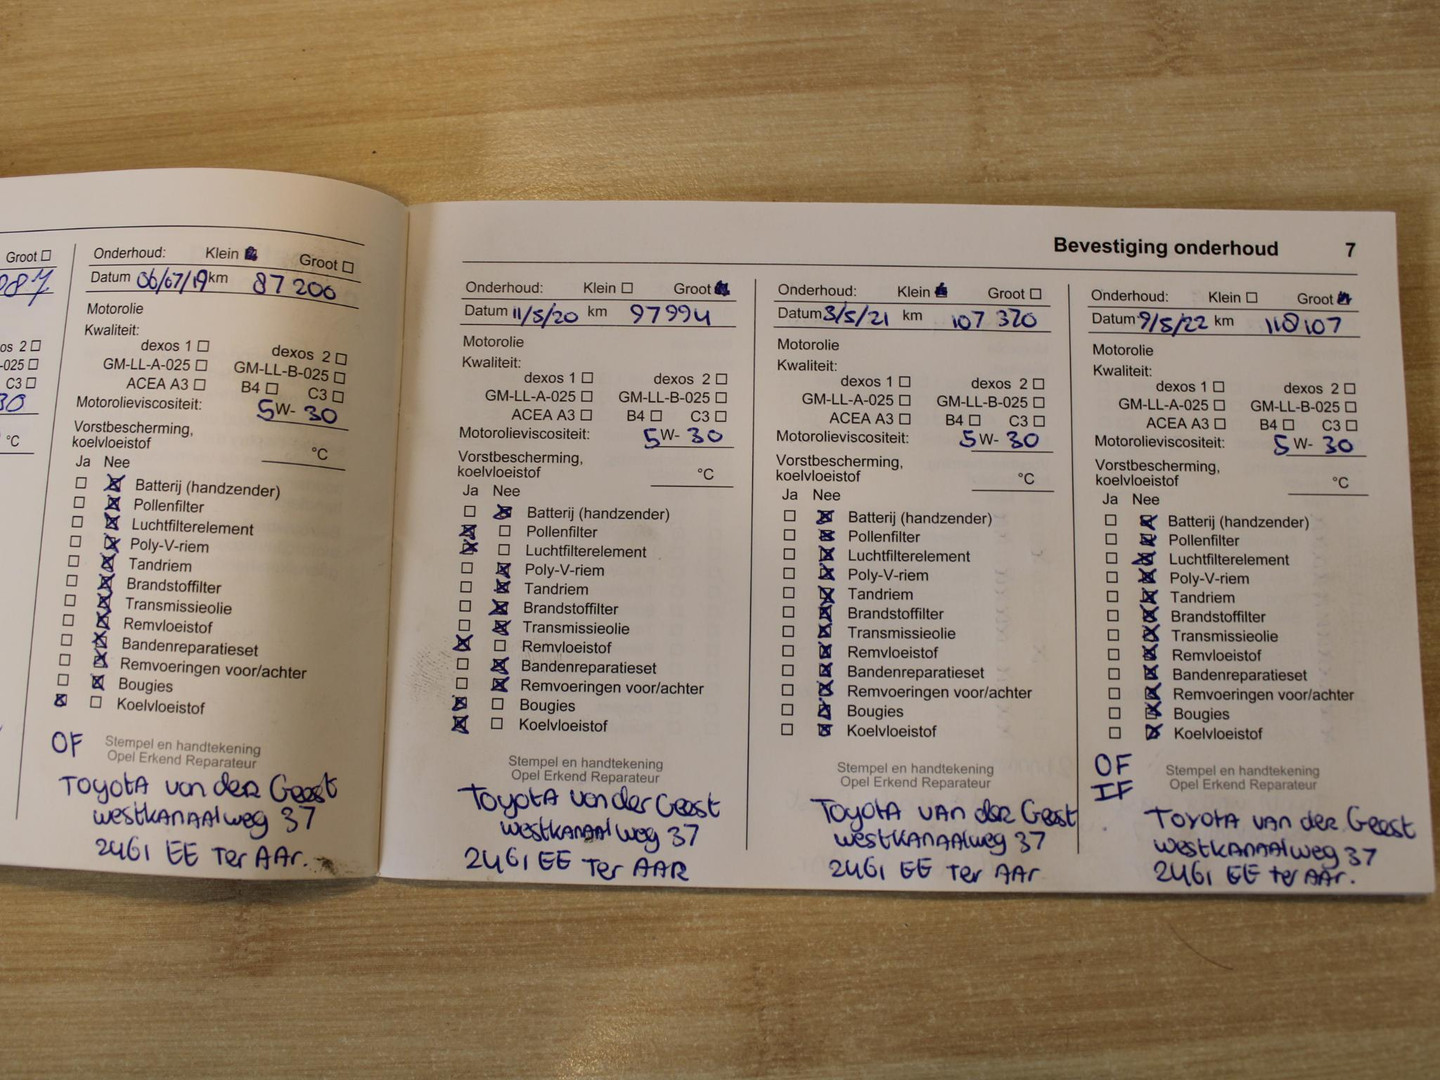 Groot
Onderhoud: Klein Groot
Datum 06/07/19 km 87 200
Motorolie
Kwaliteit:
dexos 1 dexos 2
GM-LL-A-025 GM-LL-B-025
ACEA A3 B4 C3
Motorolieviscositeit: 5W- 30
Vorstbescherming,
koelvloeistof °C
Ja Nee
Batterij (handzender)
Pollenfilter
Luchtfilterelement
Poly-V-riem
Tandriem
Brandstoffilter
Transmissieolie
Remvloeistof
Bandenreparatieset
Remvoeringen voor/achter
Bougies
Koelvloeistof
OF Stempel en handtekening
Opel Erkend Reparateur
Toyota van der Geest
westkanaalweg 37
2461 EE Ter AAr.
Bevestiging onderhoud 7
Onderhoud: Klein Groot
Datum 11/5/20 km 97994
Motorolie
Kwaliteit:
dexos 1 dexos 2
GM-LL-A-025 GM-LL-B-025
ACEA A3 B4 C3
Motorolieviscositeit: 5W- 30
Vorstbescherming,
koelvloeistof °C
Ja Nee
Batterij (handzender)
Pollenfilter
Luchtfilterelement
Poly-V-riem
Tandriem
Brandstoffilter
Transmissieolie
Remvloeistof
Bandenreparatieset
Remvoeringen voor/achter
Bougies
Koelvloeistof
Stempel en handtekening
Opel Erkend Reparateur
Toyota van der Geest
westkanaalweg 37
2461 EE Ter AAR
Onderhoud: Klein Groot
Datum 3/5/21 km 107 320
Motorolie
Kwaliteit:
dexos 1 dexos 2
GM-LL-A-025 GM-LL-B-025
ACEA A3 B4 C3
Motorolieviscositeit: 5W- 30
Vorstbescherming,
koelvloeistof °C
Ja Nee
Batterij (handzender)
Pollenfilter
Luchtfilterelement
Poly-V-riem
Tandriem
Brandstoffilter
Transmissieolie
Remvloeistof
Bandenreparatieset
Remvoeringen voor/achter
Bougies
Koelvloeistof
Stempel en handtekening
Opel Erkend Reparateur
Toyota van der Geest
westkanaalweg 37
2461 EE Ter AAr
Onderhoud: Klein Groot
Datum 9/5/22 km 118107
Motorolie
Kwaliteit:
dexos 1 dexos 2
GM-LL-A-025 GM-LL-B-025
ACEA A3 B4 C3
Motorolieviscositeit: 5W- 30
Vorstbescherming,
koelvloeistof °C
Ja Nee
Batterij (handzender)
Pollenfilter
Luchtfilterelement
Poly-V-riem
Tandriem
Brandstoffilter
Transmissieolie
Remvloeistof
Bandenreparatieset
Remvoeringen voor/achter
Bougies
Koelvloeistof
OF Stempel en handtekening
IF Opel Erkend Reparateur
Toyota van der Geest
westkanaalweg 37
2461 EE ter AAr.